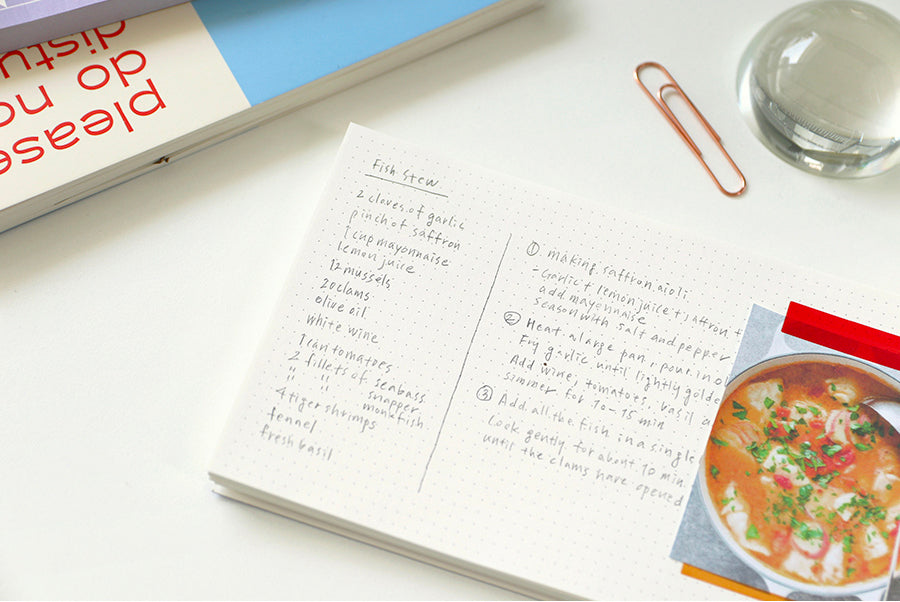 please
do no
distu
Fish stew
2 cloves of garlic
pinch of saffron
1 cup mayonnaise
lemon juice
12 mussels
20 clams
olive oil
white wine
1 can tomatoes
2 fillets of seabass
" " snapper
" " monkfish
4 tiger shrimps
fennel
fresh basil
① making saffron aioli
- Garlic + lemon juice + saffron +
add mayonnaise
season with salt and pepper
② Heat a large pan, pour in
Fry garlic until lightly golde
Add wine, tomatoes, basil a
simmer for 10-15 min
③ Add all the fish in a single
Cook gently for about 10 min.
until the clams have opened